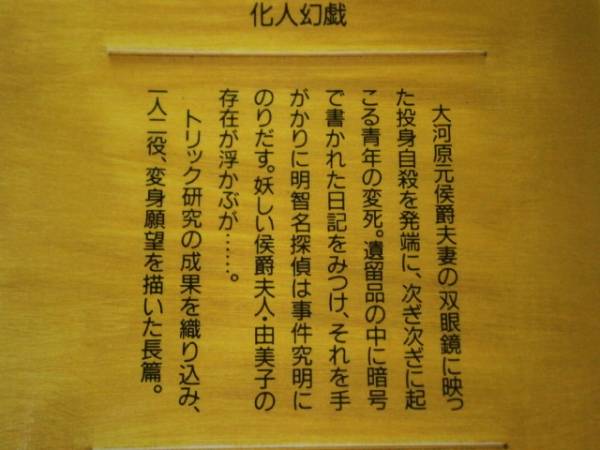 化人幻戯
大河原元侯爵夫妻の双眼鏡に映っ
た投身自殺を発端に、次ぎ次ぎに起
こる青年の変死。遺留品の中に暗号
で書かれた日記をみつけ、それを手
がかりに明智名探偵は事件究明に
のりだす。妖しい侯爵夫人・由美子の
存在が浮かぶが……。
トリック研究の成果を織り込み、
一人二役、変身願望を描いた長篇。